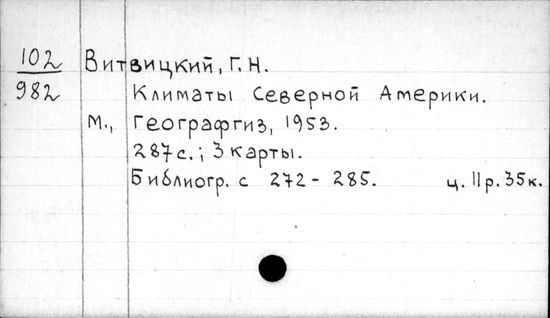 102 Витвицкий, Г.Н.
982 Климаты Северной Америки.
М., Географгиз, 1953.
287с.; 3 карты.
Библиогр. с 272 - 285. ц. 11р. 35к.